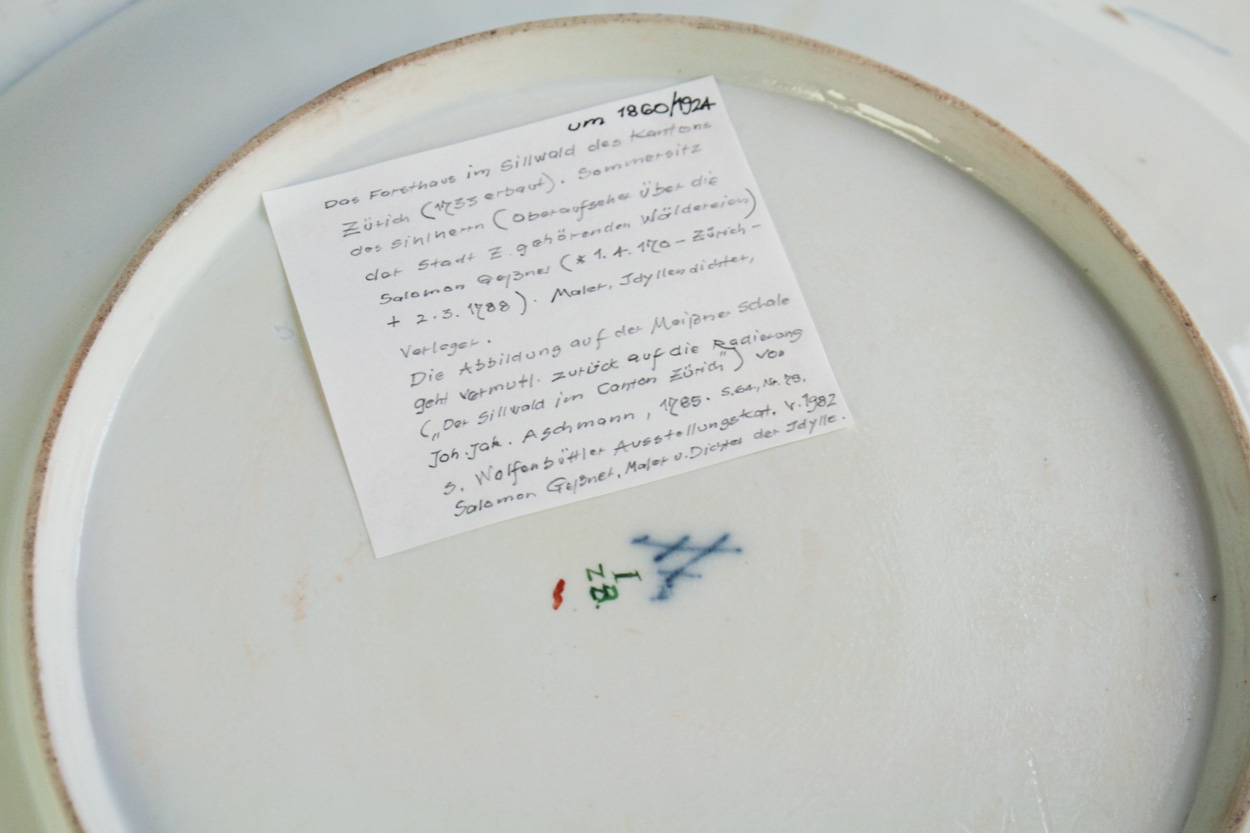 um 1860/1924
Das Forsthaus im Sillwald des Kantons
Zürich (1733 erbaut). Sommersitz
des Sihlherrn (Oberaufseher über die
der Stadt Z. gehörenden Wäldereien)
Salomon Geßner (* 1. 4. 170 – Zürich –
+ 2. 3. 1788). Maler, Idyllendichter,
Verleger.
Die Abbildung auf der Meißner Schale
geht vermutl. zurück auf die Radierung
(„Der Sillwald im Canton Zürich") von
Joh. Jak. Aschmann, 1785. S. 64, Nr. 78.
s. Wolfenbüttler Ausstellungskat. v. 1982
Salomon Geßner, Maler u. Dichter der Idylle.
I
Z B.